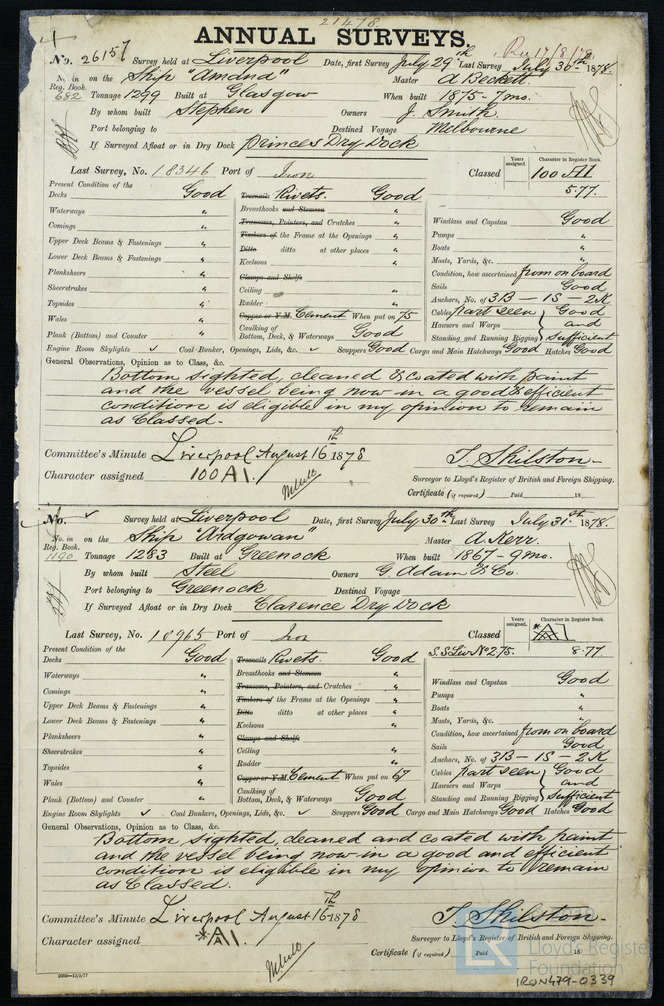 21478
ANNUAL SURVEYS.
No. 26157 Survey held at Liverpool Date, first Survey July 29th Last Survey July 30th 1878.
No. in Reg. Book. 682 on the Ship "Amana" Master A Beckett
Tonnage 1299 Built at Glasgow When built 1875-7mo.
By whom built Stephen Owners J. Smith
Port belonging to Destined Voyage Melbourne
If Surveyed Afloat or in Dry Dock Princes Dry Dock
Last Survey, No. 18346 Port of Iron Classed Years assigned. Character in Register Book. 100 A1
5.77.
Present Condition of the
Decks Good Treenails Rivets. Good
Waterways " Breasthooks and Stemson " Windlass and Capstan Good
Comings " Transoms, Pointers, and Crutches " Pumps "
Upper Deck Beams & Fastenings " Timbers of the Frame at the Openings " Boats "
Lower Deck Beams & Fastenings " Ditto ditto at other places " Masts, Yards, &c. "
Planksheers " Keelsons " Condition, how ascertained from on board
Sheerstrakes " Clamps and Shelfs Sails Good
Topsides " Ceiling " Anchors, No. of 3B - 1S - 2K
Wales " Rudder " Cables part seen Good
Copper or Y.M. Cement When put on 75 Hawsers and Warps and
Plank (Bottom) and Counter " Caulking of Bottom, Deck, & Waterways Good Standing and Running Rigging sufficient
Engine Room Skylights ✓ Coal Bunker, Openings, Lids, &c. ✓ Scuppers Good Cargo and Main Hatchways Good Hatches Good
General Observations, Opinion as to Class, &c.
Bottom sighted, cleaned & coated with paint
and the vessel being now in a good & efficient
condition is eligible in my opinion to remain
as Classed.
Committee's Minute Liverpool August 16th 1878
Character assigned 100A1. T. Skilston.
Surveyor to Lloyd's Register of British and Foreign Shipping.
Certificate (if required) Paid 18
No. ✓ Survey held at Liverpool Date, first Survey July 30th Last Survey July 31st 1878.
No. in Reg. Book. 1190 on the Ship "Ardgowan" Master A. Kerr.
Tonnage 1283 Built at Greenock When built 1867-9mo.
By whom built Steel Owners G. Adam & Co
Port belonging to Greenock Destined Voyage
If Surveyed Afloat or in Dry Dock Clarence Dry Dock
Last Survey, No. 18965 Port of Iron Classed Years assigned. Character in Register Book. A1
S.S Liv No 2 75. 8.77
Present Condition of the
Decks Good Treenails Rivets. Good
Waterways " Breasthooks and Stemson " Windlass and Capstan Good
Comings " Transoms, Pointers, and Crutches " Pumps "
Upper Deck Beams & Fastenings " Timbers of the Frame at the Openings " Boats "
Lower Deck Beams & Fastenings " Ditto ditto at other places " Masts, Yards, &c. "
Planksheers " Keelsons " Condition, how ascertained from on board
Sheerstrakes " Clamps and Shelfs Sails Good
Topsides " Ceiling " Anchors, No. of 3B - 1S - 2K
Wales " Rudder " Cables part seen Good
Copper or Y.M. Cement When put on 67 Hawsers and Warps and
Plank (Bottom) and Counter " Caulking of Bottom, Deck, & Waterways Good Standing and Running Rigging sufficient
Engine Room Skylights ✓ Coal Bunkers, Openings, Lids, &c. ✓ Scuppers Good Cargo and Main Hatchways Good Hatches Good
General Observations, Opinion as to Class, &c.
Bottom sighted, cleaned and coated with paint
and the vessel being now in a good and efficient
condition is eligible in my opinion to remain
as Classed.
Committee's Minute Liverpool August 16th 1878 T. Skilston.
Character assigned A1. Surveyor to Lloyd's Register of British and Foreign Shipping.
Certificate (if required) Paid 18
Lloyd's Register
Foundation
IRON479-0339